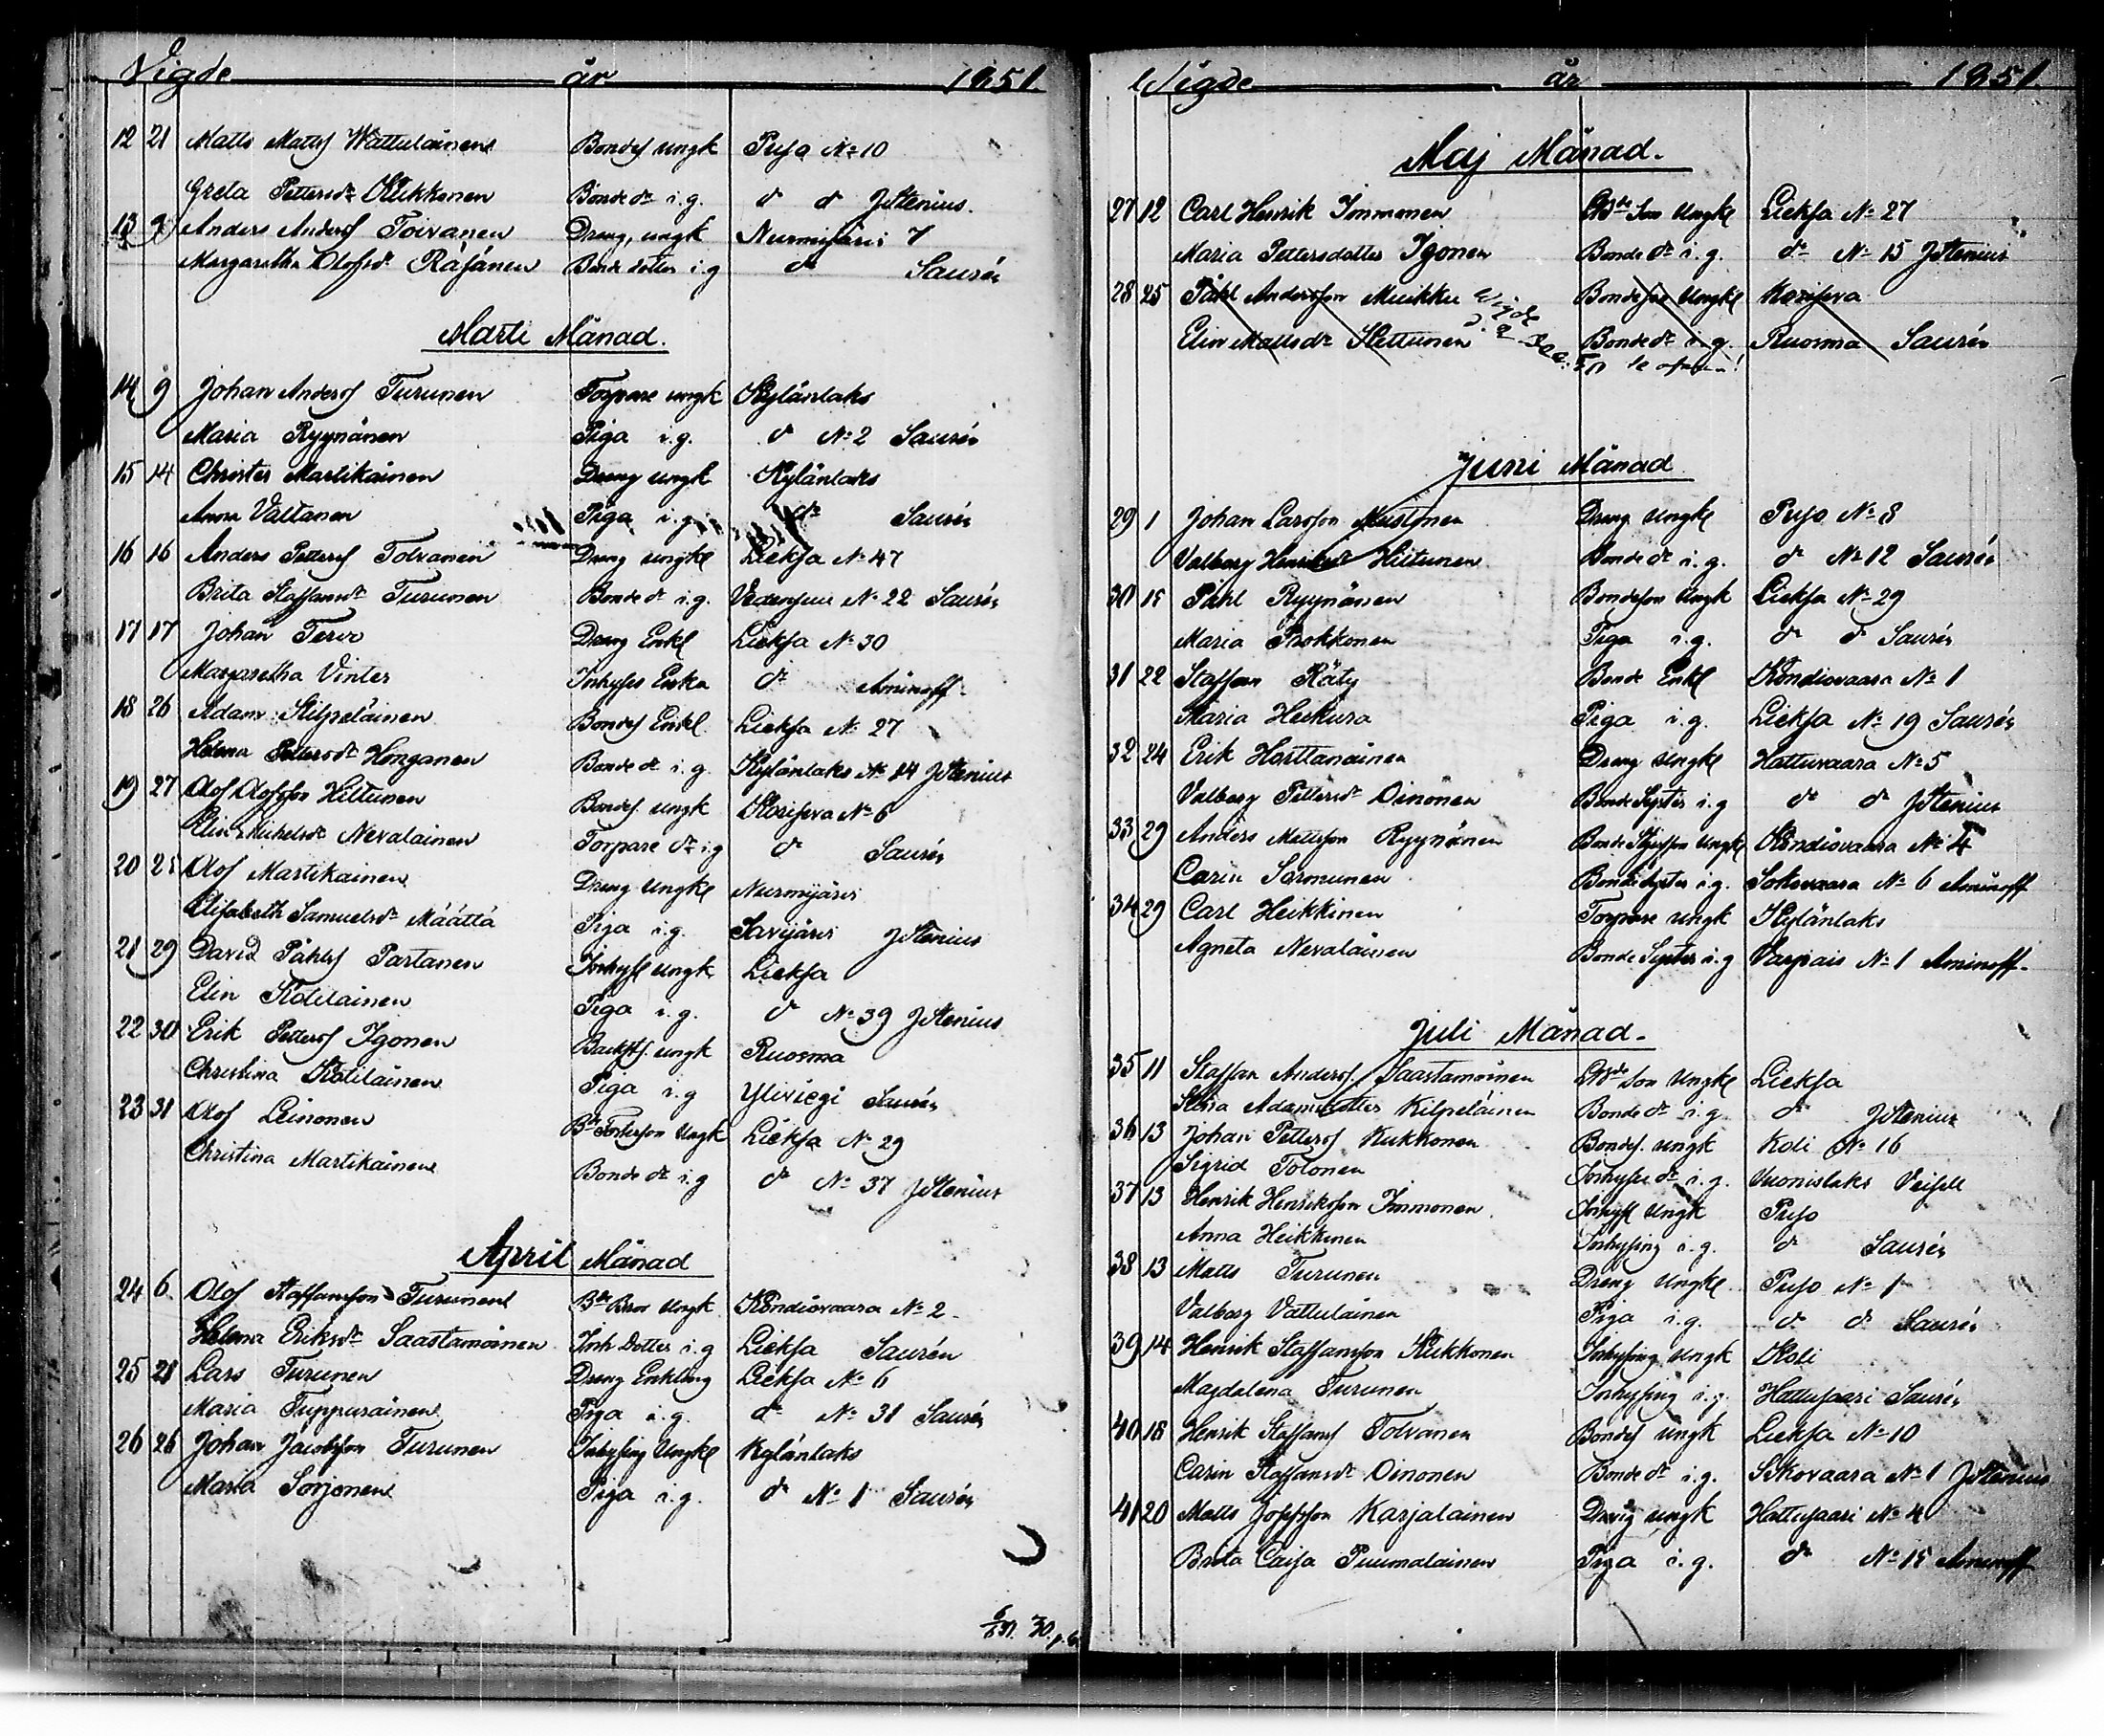 Vigde år 1851.
12 21 Matts Mattss Wattulainen Bondes ungk Puso No 10
Greta Pettersdr Kukkonen Bonde dr i.g. dr dr JStenius.
13 9 Anders Anderss Toivanen Dreng, ungk Nurmijärvi 7
Margaretha Olofsdr Räsänen Bonde dotter i.g dr Saurén
Martii Månad.
14 9 Johan Anderss Turunen Torpare ungk Kylänlaks
Maria Ryynänen Piga i.g. dr No 2 Saurén
15 14 Christer Martikainen Dreng ungk Kylänlaks
Anna Valtanen Piga i.g. dr Saurén
16 16 Anders Petters Tolvanen Dreng ungkl Lieksa No 47
Brita Staffansdr Turunen Bonde dr i.g. No 22 Saurén
17 17 Johan Terve Dreng Enkl Lieksa No 30
Margaretha Vinter Inhyses Enka dr Aminoff.
18 26 Adam Kilpeläinen Bondes Enkl. Lieksa No 27
Helena Pettersdr Honganen Bonde dr i.g. Kylänlaks No 14 JStenius
19 27 Olof Olofsson Hiltunen Bondes. ungk Korisera No 6
Elin Michelsdr Nevalainen Torpare dr i.g dr Saurén
20 28 Olof Martikainen Dreng Ungkl Nurmijärvi
Elisabeth Samuelsdr Määttä Piga i.g. Savijärvi JStenius
21 29 David Påhlss Partanen Inhyss ungk Lieksa
Elin Kotilainen Piga i.g. dr No 39 JStenius
22 30 Erik Petterss Igonen Backsts. ungk Ruosma
Christina Kotilainen Piga i.g Yliviegi Saurén
23 31 Olof Leinonen Ungk Lieksa No 29
Christina Martikainen Bonde dr i.g dr No 37 JStenius
April Månad
24 6. Olof Staffansson Turunen Bde Bror Ungk Kondiovaara No 2.
Helena Eriksdr Saastamoinen Inh Dotter i.g Lieksa Saurén
25 21 Lars Turunen Dreng Enkling Lieksa No 6
Maria Tuppurainen Piga i.g. dr No 31 Saurén
26 26 Johan Jacobsson Turunen Inhysing Ungkl Kylänlaks
Maria Sorjonen Piga i.g. dr No 1 Saurén
Vigde år 1851.
Maj Månad.
27 12 Carl Henrik Immonen Son Ungkl Lieksa No 27
Maria Pettersdotter Igonen Bonde dr i.g. dr No 15 JStenius
28 25 Påhl Andersson Muikku Bondeson Ungkl Korisera
Elin Mattsdr Hettunen Bonde dr i.g. Ruosma Saurén
Juni Månad
29 1 Johan Larsson Mustonen Dreng Ungkl Puso No 8
Valborg Henriksdr Hiltunen Bonde dr i.g. dr No 12 Saurén
30 15 Påhl Ryynänen Bondeson Ungk Lieksa No 29
Maria Prokkonen Piga i.g. dr dr Saurén
31 22 Staffan Räty Bonde Enkl Kondiovaara No 1
Maria Heikura Piga i.g. Lieksa No 19 Saurén
32 24 Erik Horttanainen Dreng Ungkl Hattuvaara No 5
Valborg Pettersdr Oinonen Bonde Syster i.g dr dr JStenius
33 29 Anders Mattsson Ryynänen Bonde Ungkl Kondiovaara No 4
Carin Sormunen Bonde syster i.g. Sokovaara No 6 Aminoff
34 29 Carl Heikkinen Torpare ungk Kylänlaks
Agneta Nevalainen Bonde Syster i.g Varpais No 1 Aminoff.
Juli Månad.
35 11 Staffan Anderss. Saastamoinen Son Ungkl Lieksa
Stina Adamsdotter Kilpeläinen Bonde dr i.g. dr JStenius
36 13 Johan Petterss Kukkonen Bondes. ungk Koli No 16
Sigrid Tolonen Inhyses dr i.g. Vuonislaks
37 13 Henrik Henriksson Immonen Inhyss Ungk Puso
Anna Heikkinen Inhysing i.g. dr Saurén
38 13 Matts Turunen Dreng Ungkl Puso No 1
Valborg Vattulainen Piga i.g. dr dr Saurén
39 14 Henrik Staffansson Kukkonen Inhysing Ungk Koli
Magdalena Turunen Inhysing i.g. Hattusaari Saurén
40 18 Henrik Staffanss Tolvanen Bondes ungk Lieksa No 10
Carin Staffansdr Oinonen Bonde dr i.g. Sokovaara No 1 JStenius
41 20 Matts Josefsson Karjalainen Dreng ungk Hattusaari No 4
Brita Caisa Puumalainen Piga i.g. dr No 15 Aminoff